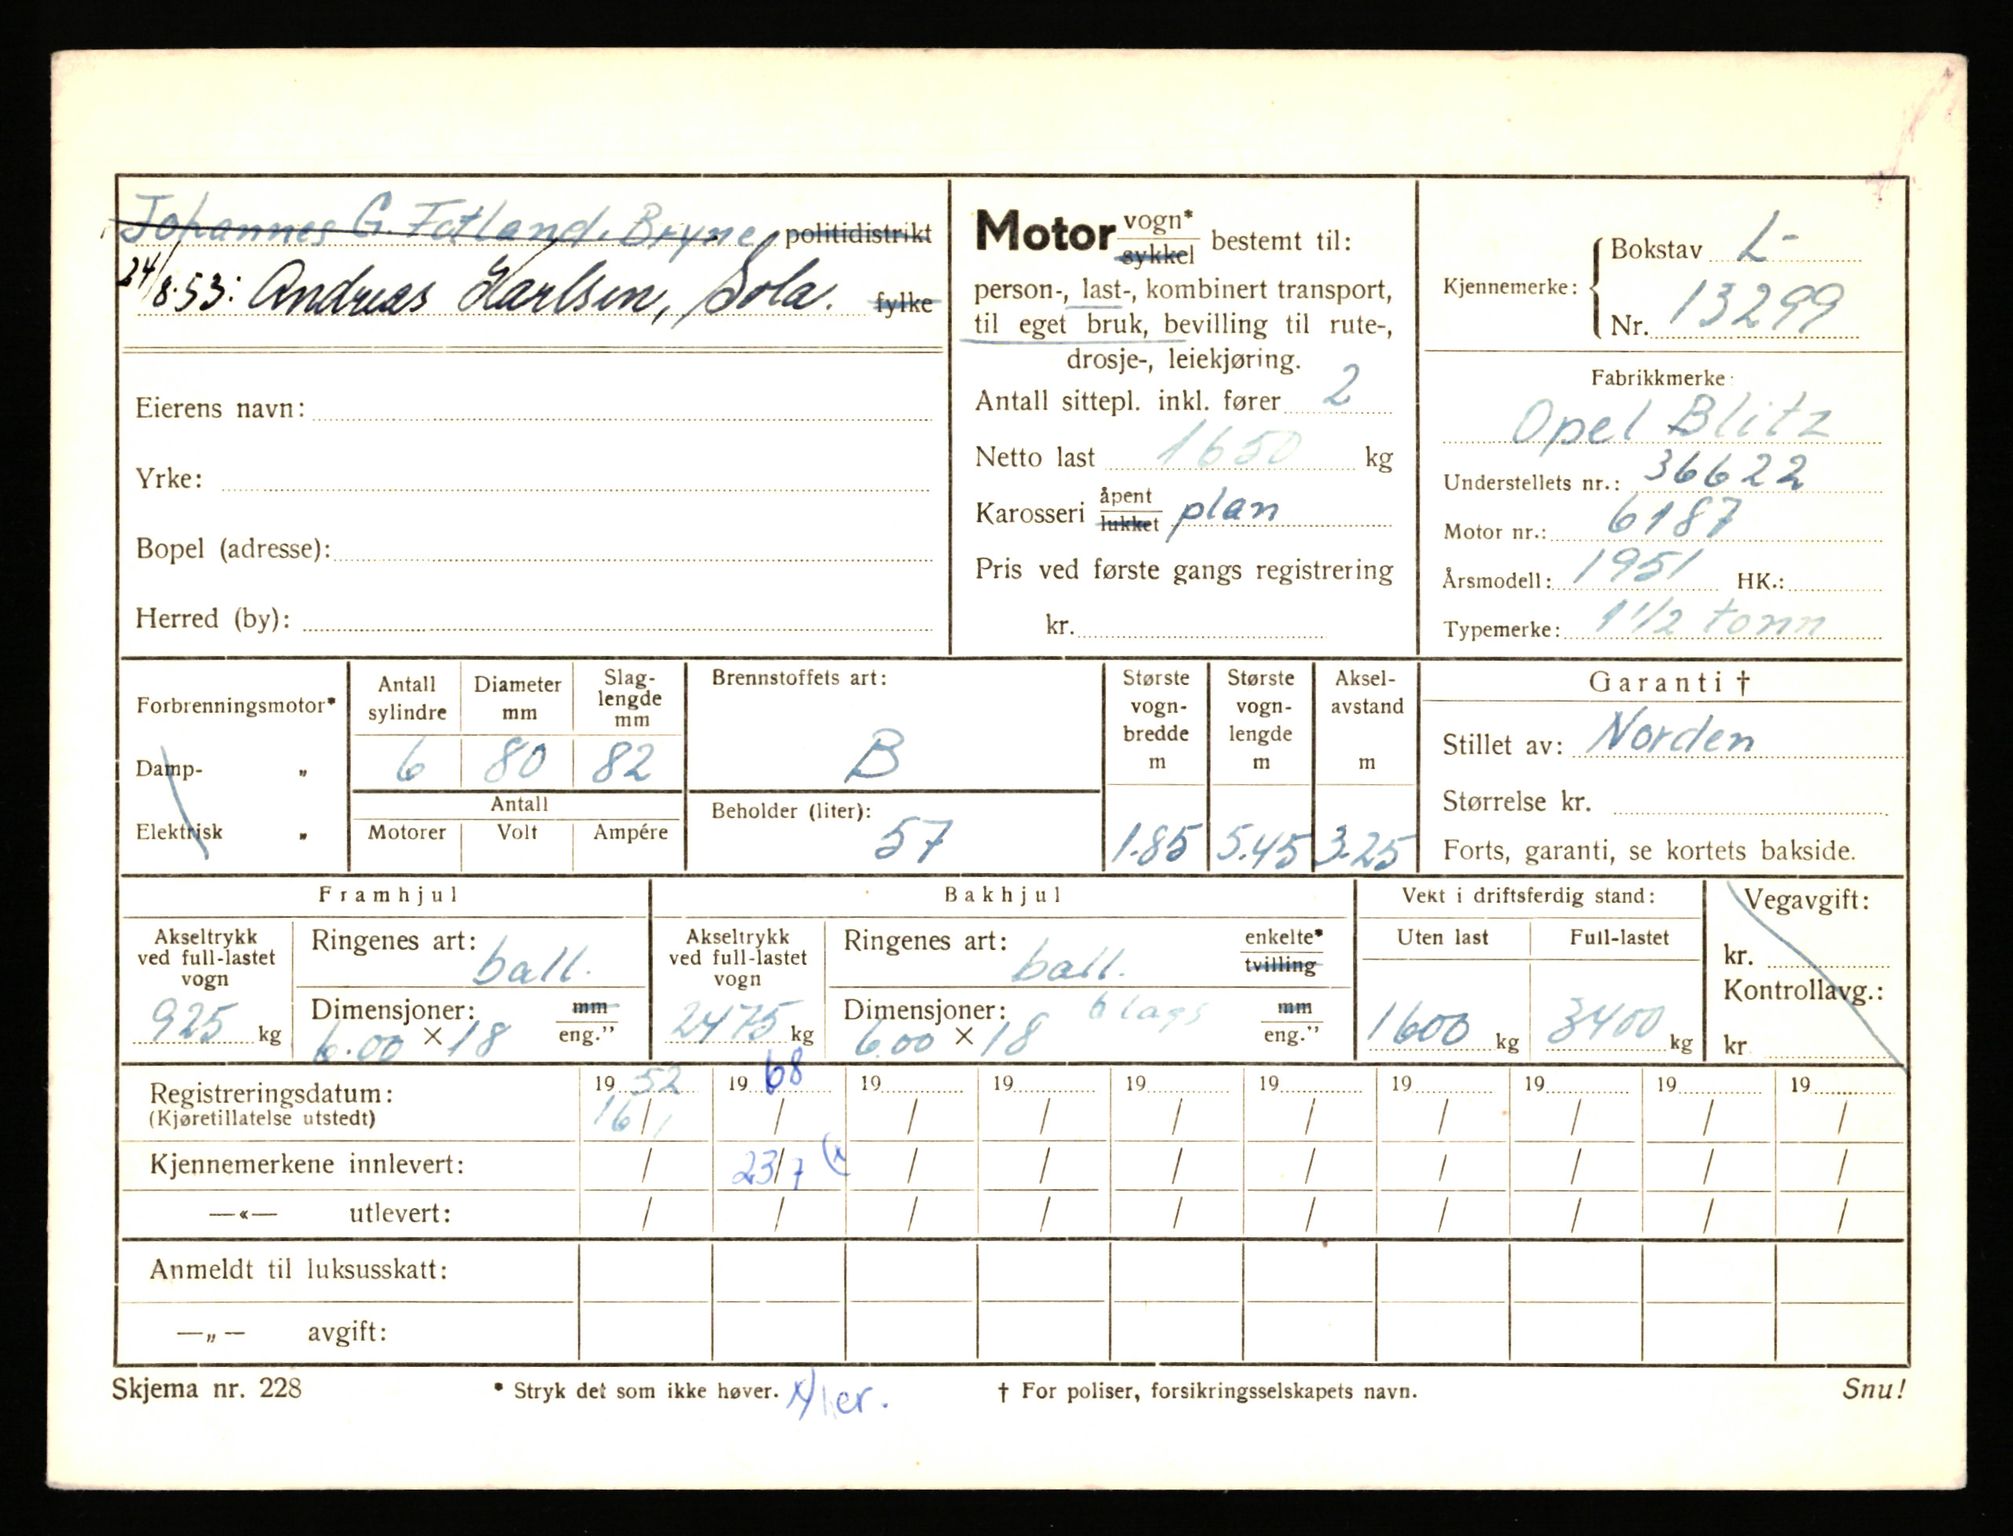 Johannes G. Fatland, Bryne politidistrikt
24/8.53: Andreas Karlsen, Sola. fylke
Eierens navn:
Yrke:
Bopel (adresse):
Herred (by):
Motor vogn* sykkel bestemt til:
person-, last-, kombinert transport,
til eget bruk, bevilling til rute-,
drosje-, leiekjøring.
Antall sittepl. inkl. fører 2
Netto last 1650 kg
Karosseri åpent lukket plan
Pris ved første gangs registrering
kr.
Kjennemerke: Bokstav L-
Nr. 13299
Fabrikkmerke:
Opel Blitz
Understellets nr.: 36622
Motor nr.: 6187
Årsmodell: 1951 HK.:
Typemerke: 1 1/2 tonn
Forbrenningsmotor*
Damp- „
Elektrisk „
Antall sylindre
Diameter mm
Slag-lengde mm
6 80 82
Antall
Motorer Volt Ampére
Brennstoffets art:
B
Beholder (liter):
57
Største vogn-bredde m
1.85
Største vogn-lengde m
5.45
Aksel-avstand m
3.25
Garanti †
Stillet av: Norden
Størrelse kr.
Forts, garanti, se kortets bakside.
Framhjul
Akseltrykk ved full-lastet vogn
925 kg
Ringenes art: ball.
Dimensjoner: mm
6.00 × 18 eng."
Bakhjul
Akseltrykk ved full-lastet vogn
2475 kg
Ringenes art: ball. enkelte* tvilling
Dimensjoner: 6 lags mm
6.00 × 18 eng."
Vekt i driftsferdig stand:
Uten last Full-lastet
1600 kg 3400 kg
Vegavgift:
kr.
Kontrollavg.:
kr
Registreringsdatum: 19 52 19 68 19 19 19 19 19 19 19 19
(Kjøretillatelse utstedt) 16/1 / / / / / / / / /
Kjennemerkene innlevert: / 23/7 (x / / / / / / / /
—«— utlevert: / / / / / / / / / /
Anmeldt til luksusskatt:
—„— avgift:
Skjema nr. 228 * Stryk det som ikke høver. † For poliser, forsikringsselskapets navn. Snu!